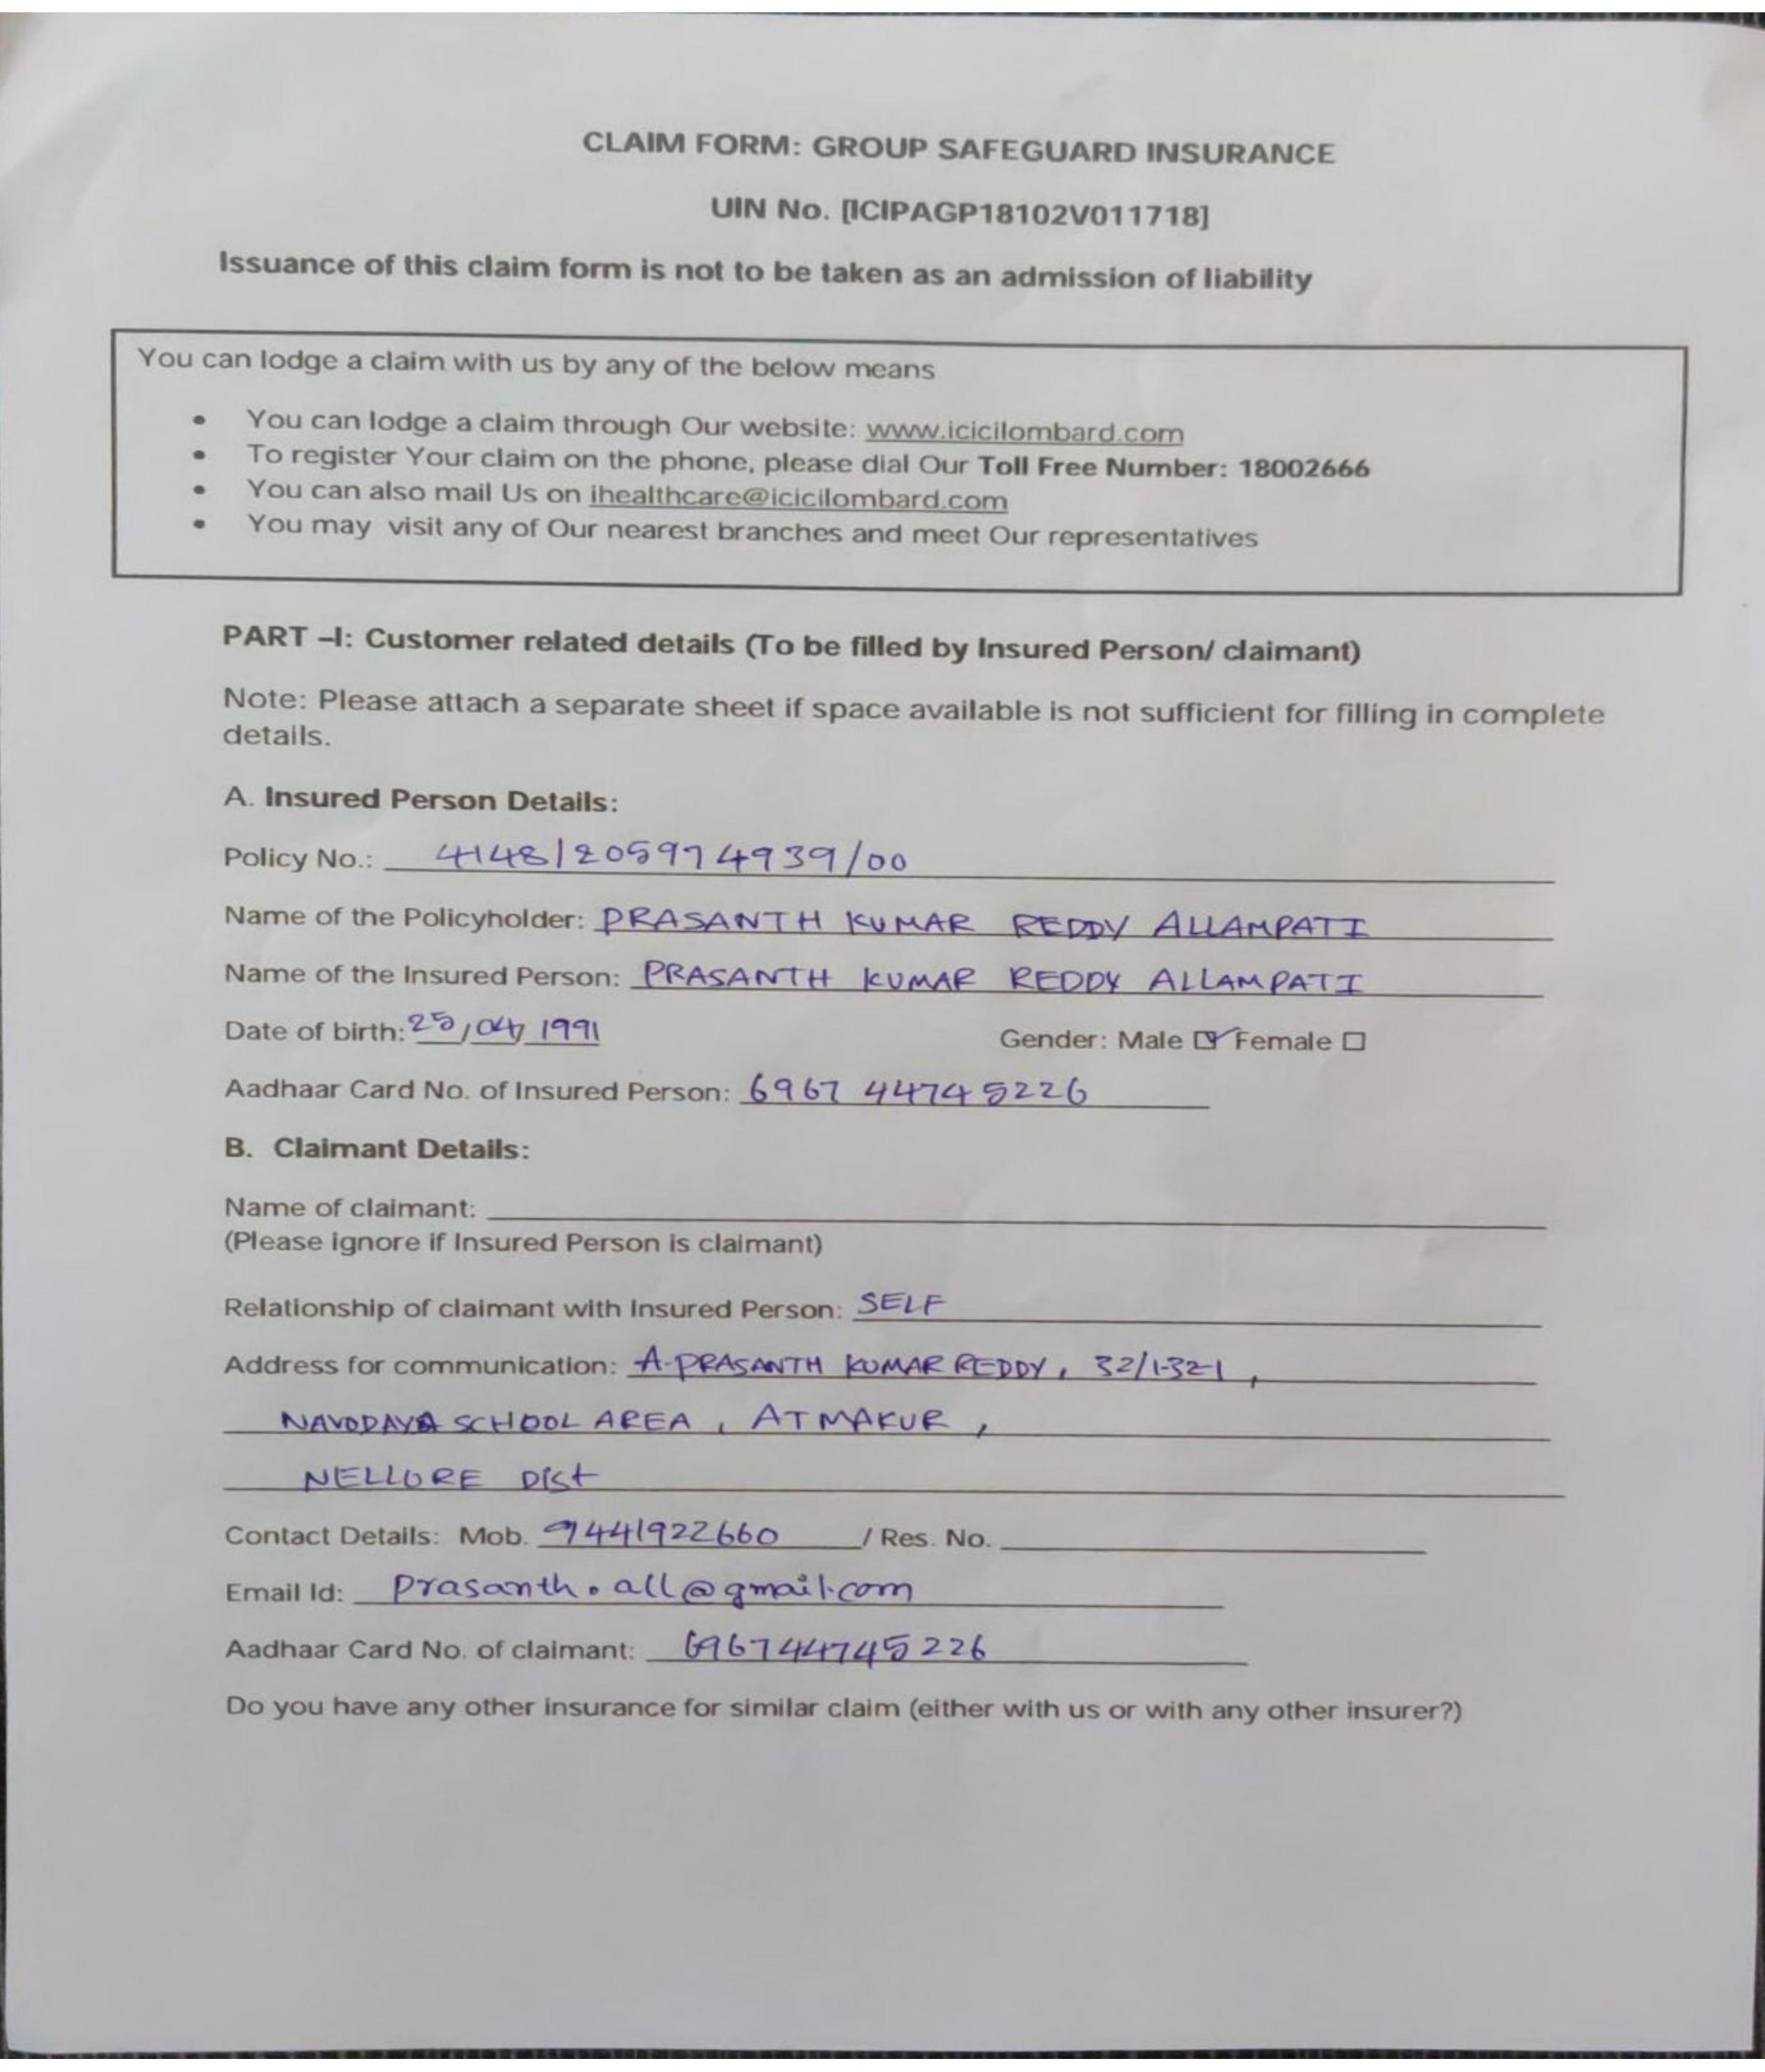 CLAIM FORM: GROUP SAFEGUARD INSURANCE
UIN No. [ICIPAGP18102V011718]
Issuance of this claim form is not to be taken as an admission of liability
You can lodge a claim with us by any of the below means
• You can lodge a claim through Our website: www.icicilombard.com
• To register Your claim on the phone, please dial Our Toll Free Number: 18002666
• You can also mail Us on ihealthcare@icicilombard.com
• You may visit any of Our nearest branches and meet Our representatives
PART –I: Customer related details (To be filled by Insured Person/ claimant)
Note: Please attach a separate sheet if space available is not sufficient for filling in complete
details.
A. Insured Person Details:
Policy No.: 4148/205974939/00
Name of the Policyholder: PRASANTH KUMAR REDDY ALLAMPATI
Name of the Insured Person: PRASANTH KUMAR REDDY ALLAMPATI
Date of birth: 25/04/1991 Gender: Male ☑ Female ☐
Aadhaar Card No. of Insured Person: 6967 44745226
B. Claimant Details:
Name of claimant:
(Please ignore if Insured Person is claimant)
Relationship of claimant with Insured Person: SELF
Address for communication: A.PRASANTH KUMAR REDDY, 32/1-321,
NAVODAYA SCHOOL AREA, ATMAKUR,
NELLORE DIst
Contact Details: Mob. 9441922660 / Res. No.
Email Id: prasanth.all@gmail.com
Aadhaar Card No. of claimant: 696744745226
Do you have any other insurance for similar claim (either with us or with any other insurer?)